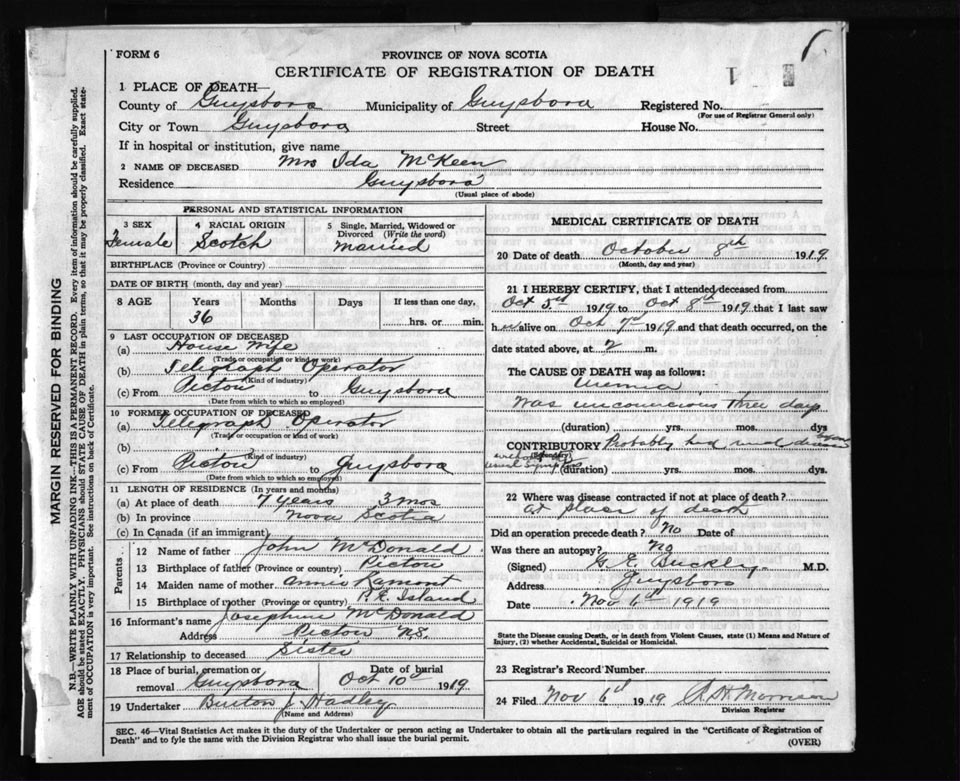 FORM 6
PROVINCE OF NOVA SCOTIA
CERTIFICATE OF REGISTRATION OF DEATH
1 PLACE OF DEATH—
County of Guysboro Municipality of Guysboro Registered No.
(For use of Registrar General only)
City or Town Guysboro Street House No.
If in hospital or institution, give name
2 NAME OF DECEASED Mrs Ida McKeen
Residence Guysboro
(Usual place of abode)
PERSONAL AND STATISTICAL INFORMATION
3 SEX 4 RACIAL ORIGIN 5 Single, Married, Widowed or Divorced (Write the word)
Female Scotch Married
BIRTHPLACE (Province or Country)
DATE OF BIRTH (month, day and year)
8 AGE Years Months Days If less than one day,
36 hrs. or min.
9 LAST OCCUPATION OF DECEASED
(a) House Wife
(Trade or occupation or kind of work)
(b) Telegraph Operator
(Kind of industry)
(c) From Pictou to Guysboro
(Date from which to which so employed)
10 FORMER OCCUPATION OF DECEASED
(a) Telegraph Operator
(Trade or occupation or kind of work)
(b)
(Kind of industry)
(c) From Pictou to Guysboro
(Date from which to which so employed)
11 LENGTH OF RESIDENCE (In years and months)
(a) At place of death 7 years 3 mos
(b) In province Nova Scotia
(c) In Canada (if an immigrant)
Parents
12 Name of father John McDonald
13 Birthplace of father (Province or country) Pictou
14 Maiden name of mother Annie Lamont
15 Birthplace of mother (Province or country) P. E. Island
16 Informant's name Josephine McDonald
Address Pictou N.S.
17 Relationship to deceased Sister
18 Place of burial, cremation or removal Guysboro Date of burial Oct 10th 1919
19 Undertaker Burton J. Hadley
(Name and Address)
MEDICAL CERTIFICATE OF DEATH
20 Date of death October 8th 1919
(Month, day and year)
21 I HEREBY CERTIFY, that I attended deceased from
Oct 5th 1919 to Oct 8th 1919 that I last saw
h er alive on Oct 7th 1919 and that death occurred, on the
date stated above, at 2 m.
The CAUSE OF DEATH was as follows:
Uremia
Was unconscious three days
(duration) yrs. mos. dys
CONTRIBUTORY Probably had renal
(Secondary)
without usual symptoms
(duration) yrs. mos. dys.
22 Where was disease contracted if not at place of death?
At place of death
Did an operation precede death? No Date of
Was there an autopsy? No
(Signed) G. E. Buckley M.D.
Address Guysboro
Date Nov 6th 1919
State the Disease causing Death, or in death from Violent Causes, state (1) Means and Nature of
Injury, (2) whether Accidental, Suicidal or Homicidal.
23 Registrar's Record Number
24 Filed Nov 6th 1919 Morrison
Division Registrar
SEC. 46—Vital Statistics Act makes it the duty of the Undertaker or person acting as Undertaker to obtain all the particulars required in the "Certificate of Registration of
Death" and to fyle the same with the Division Registrar who shall issue the burial permit.
(OVER)
MARGIN RESERVED FOR BINDING
N.B.—WRITE PLAINLY WITH UNFADING INK—THIS IS A PERMANENT RECORD. Every item of information should be carefully supplied.
AGE should be stated EXACTLY. PHYSICIANS should STATE CAUSE OF DEATH in plain terms, so that it may be properly classified. Exact statement of OCCUPATION is very important. See instructions on back of Certificate.